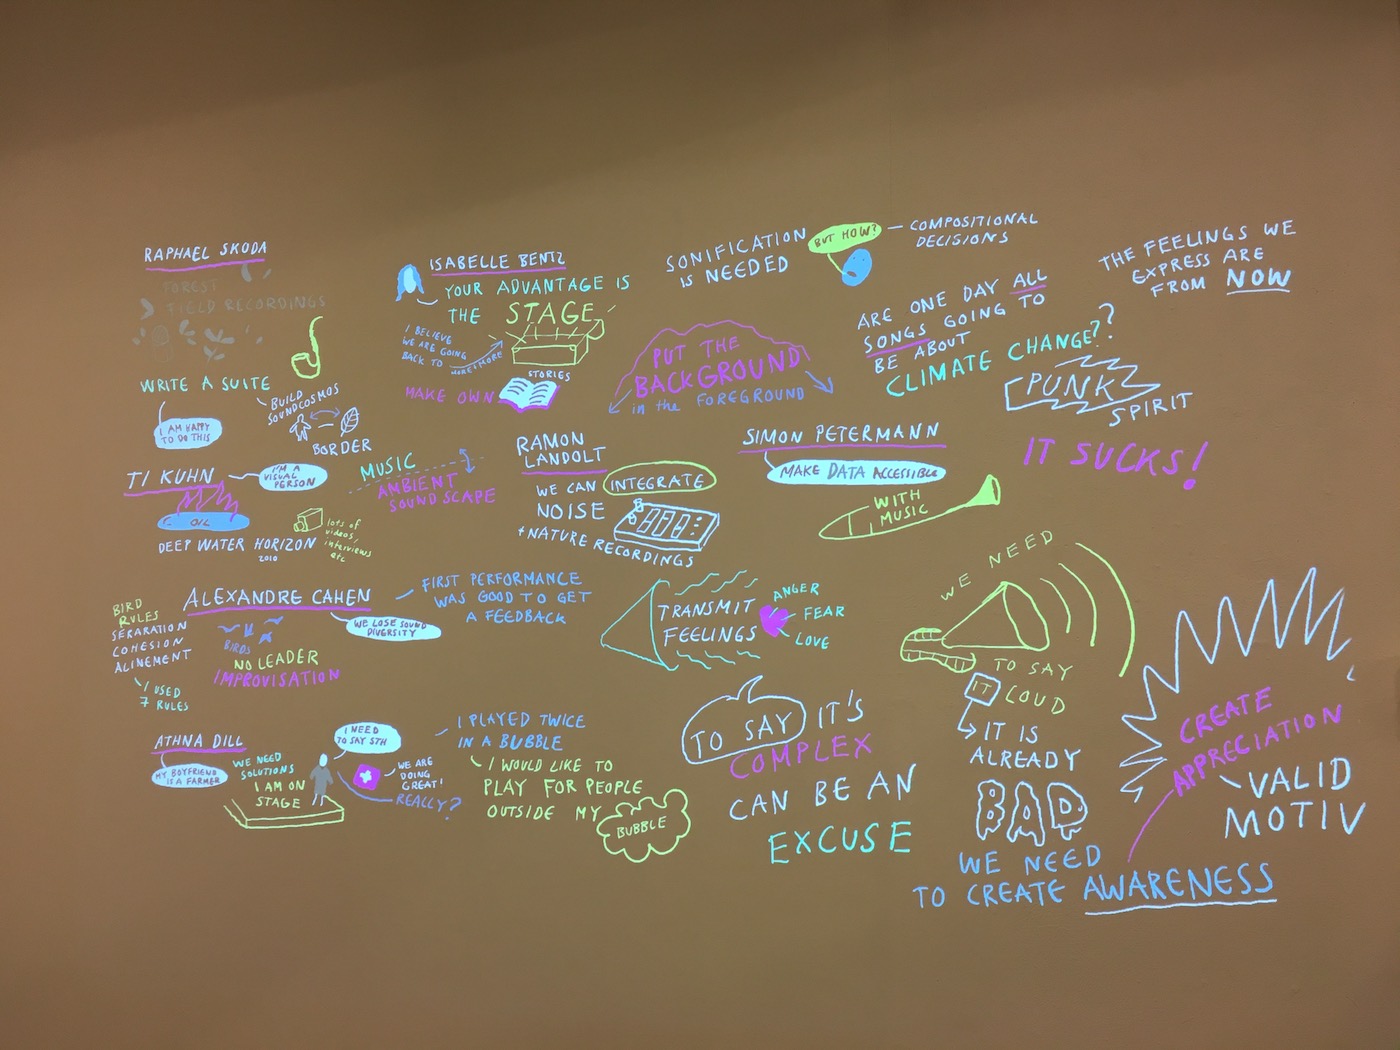 RAPHAEL SKODA
FOREST
FIELD RECORDINGS
WRITE A SUITE
I AM HAPPY
TO DO THIS
BUILD
SOUNDCOSMOS
BORDER
ISABELLE BENTZ
YOUR ADVANTAGE IS
THE STAGE
I BELIEVE
WE ARE GOING
BACK TO MORE+MORE
STORIES
MAKE OWN
PUT THE
BACKGROUND
in the FOREGROUND
SONIFICATION
IS NEEDED
BUT HOW?
— COMPOSITIONAL
DECISIONS
ARE ONE DAY ALL
SONGS GOING TO
BE ABOUT
CLIMATE CHANGE??
THE FEELINGS WE
EXPRESS ARE
FROM NOW
PUNK
SPIRIT
IT SUCKS!
TI KUHN
I'M A
VISUAL
PERSON
OIL
DEEP WATER HORIZON
2010
lots of
videos,
interviews
etc
MUSIC
AMBIENT
SOUNDSCAPE
RAMON
LANDOLT
WE CAN INTEGRATE
NOISE
+ NATURE RECORDINGS
SIMON PETERMANN
MAKE DATA ACCESSIBLE
WITH
MUSIC
ALEXANDRE CAHEN
WE LOSE SOUND
DIVERSITY
FIRST PERFORMANCE
WAS GOOD TO GET
A FEEDBACK
BIRD
RULES
SEKARATION
COHESION
ALINEMENT
I USED
7 RULES
BIRDS
NO LEADER
IMPROVISATION
TRANSMIT
FEELINGS
ANGER
FEAR
LOVE
WE NEED
TO SAY
IT LOUD
IT IS
ALREADY
BAD
WE NEED
TO CREATE AWARENESS
CREATE
APPRECIATION
VALID
MOTIV
ATHNA DILL
MY BOYFRIEND
IS A FARMER
WE NEED
SOLUTIONS
I AM ON
STAGE
I NEED
TO SAY STH
WE ARE
DOING
GREAT!
REALLY?
I PLAYED TWICE
IN A BUBBLE
I WOULD LIKE TO
PLAY FOR PEOPLE
OUTSIDE MY
BUBBLE
TO SAY IT'S
COMPLEX
CAN BE AN
EXCUSE